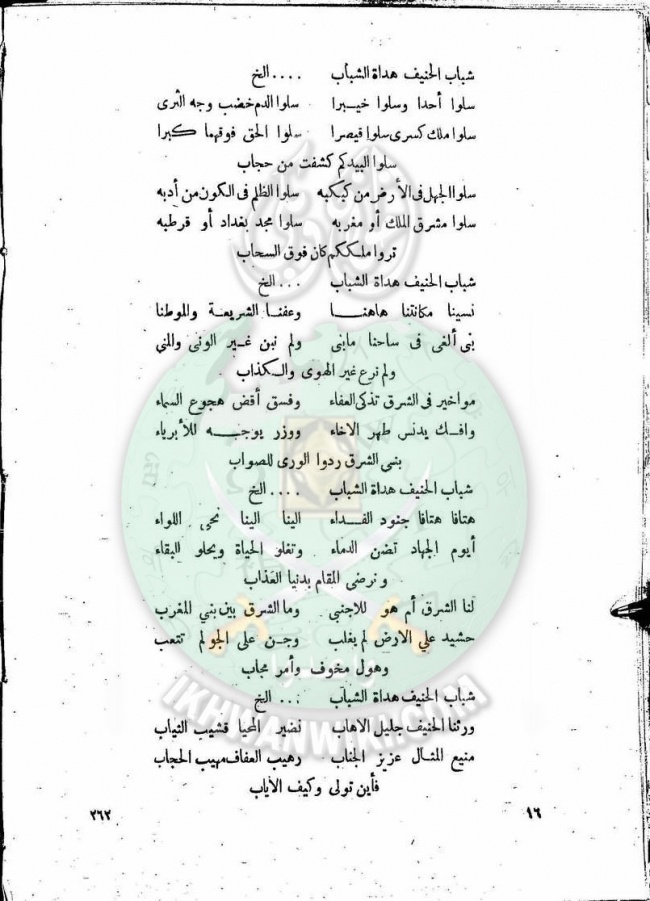 شباب الحنيف هداة الشباب .... الخ
سلوا أحدا وسلوا خيبرا سلوا الدم خضب وجه الثرى
سلوا ملك كسرى سلوا قيصرا سلوا الحق فوقهما كبرا
سلوا البيد كم كشفت من حجاب
سلوا الجهل فى الأرض من كبكبه سلوا الظلم فى الكون من أدبه
سلوا مشرق الملك أو مغربه سلوا مجد بغداد أو قرطبه
تروا ملككم كان فوق السحاب
شباب الحنيف هداة الشباب ... الخ
نسينا مكانتنا هاهنا وعفنا الشريعة والموطنا
بنى ألغى فى ساحنا مابنى ولم نبن غير الونى والمنى
ولم نرع غير الهوى والكذاب
مواخير فى الشرق تذكى العفاء وفسق أقض هجوع السماء
وافك يدنس طهر الاخاء ووزر يوجه للأبرياء
بنى الشرق ردوا الورى للصواب
شباب الحنيف هداة الشباب .... الخ
هتافا هتافا جنود الفداء الينا الينا نحي اللواء
أيوم الجهاد تضن الدماء وتغلو الحياة ويحلو البقاء
ونرضى المقام بدنيا العذاب
لنا الشرق أم هو للاجنبي وما الشرق بين بني المغرب
حشيد علي الارض لم يغلب وجن على الجو لم تتعب
وهول مخوف وأمر مجاب
شباب الحنيف هداة الشباب ... الخ
ورثنا الحنيف جليل الاهاب نضير المحيا قشيب الثياب
منيع المثال عزيز الجناب رهيب العفاف مهيب الحجاب
فأين تولى وكيف الاياب
١٦
٢٦٢
IKHWANWIKI.COM